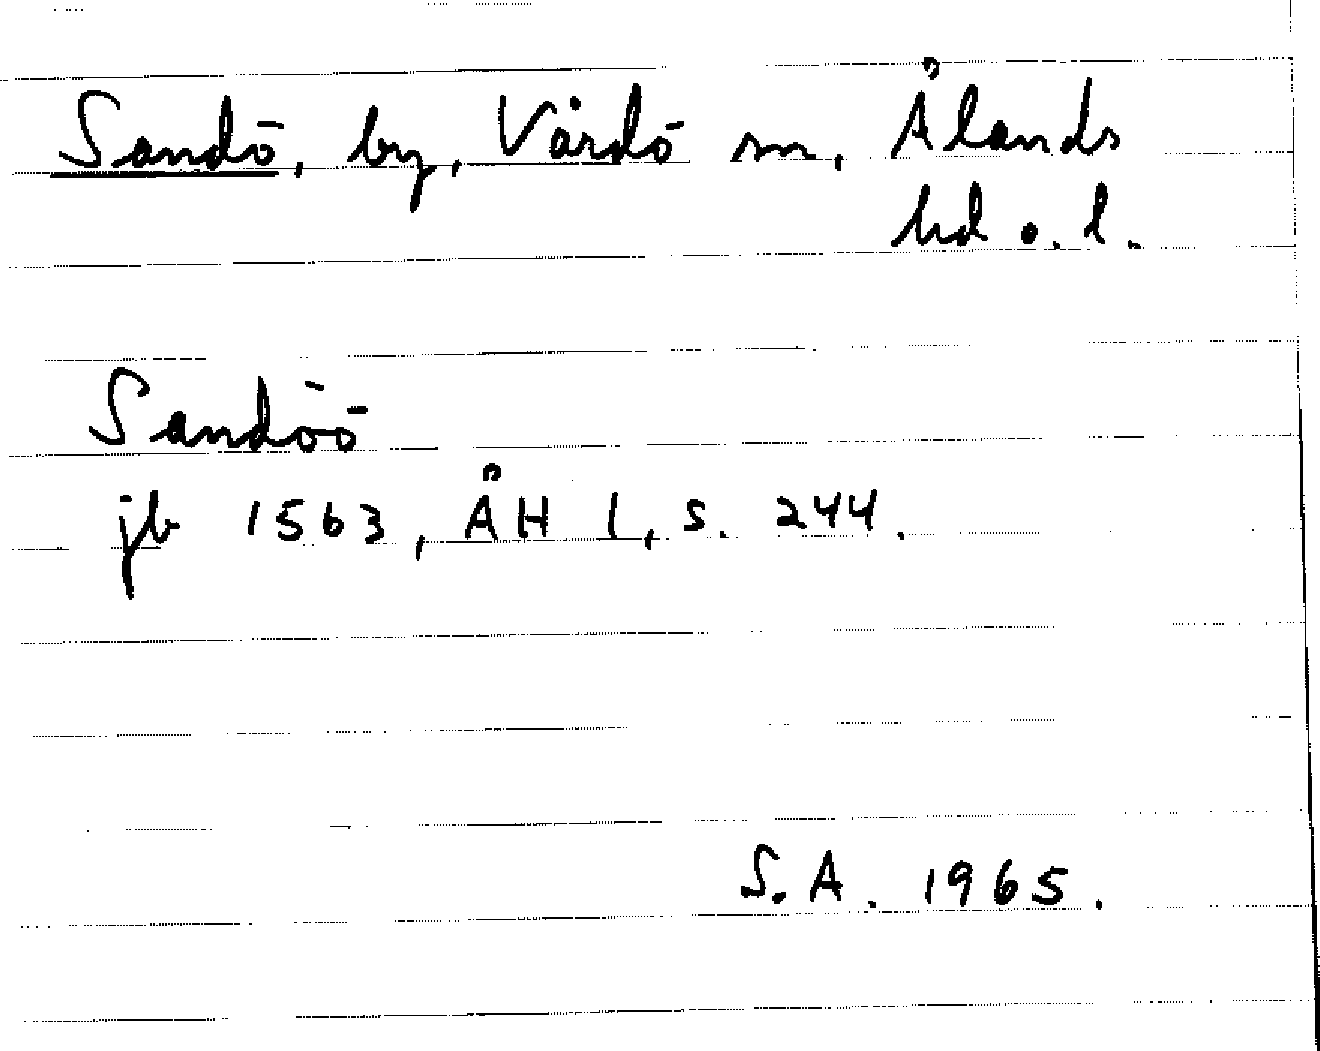 Sandö, by, Vårdö sn, Ålands
hd o. l.
Sandöö
jb 1563, ÅH I, s. 244.
S. A. 1965.